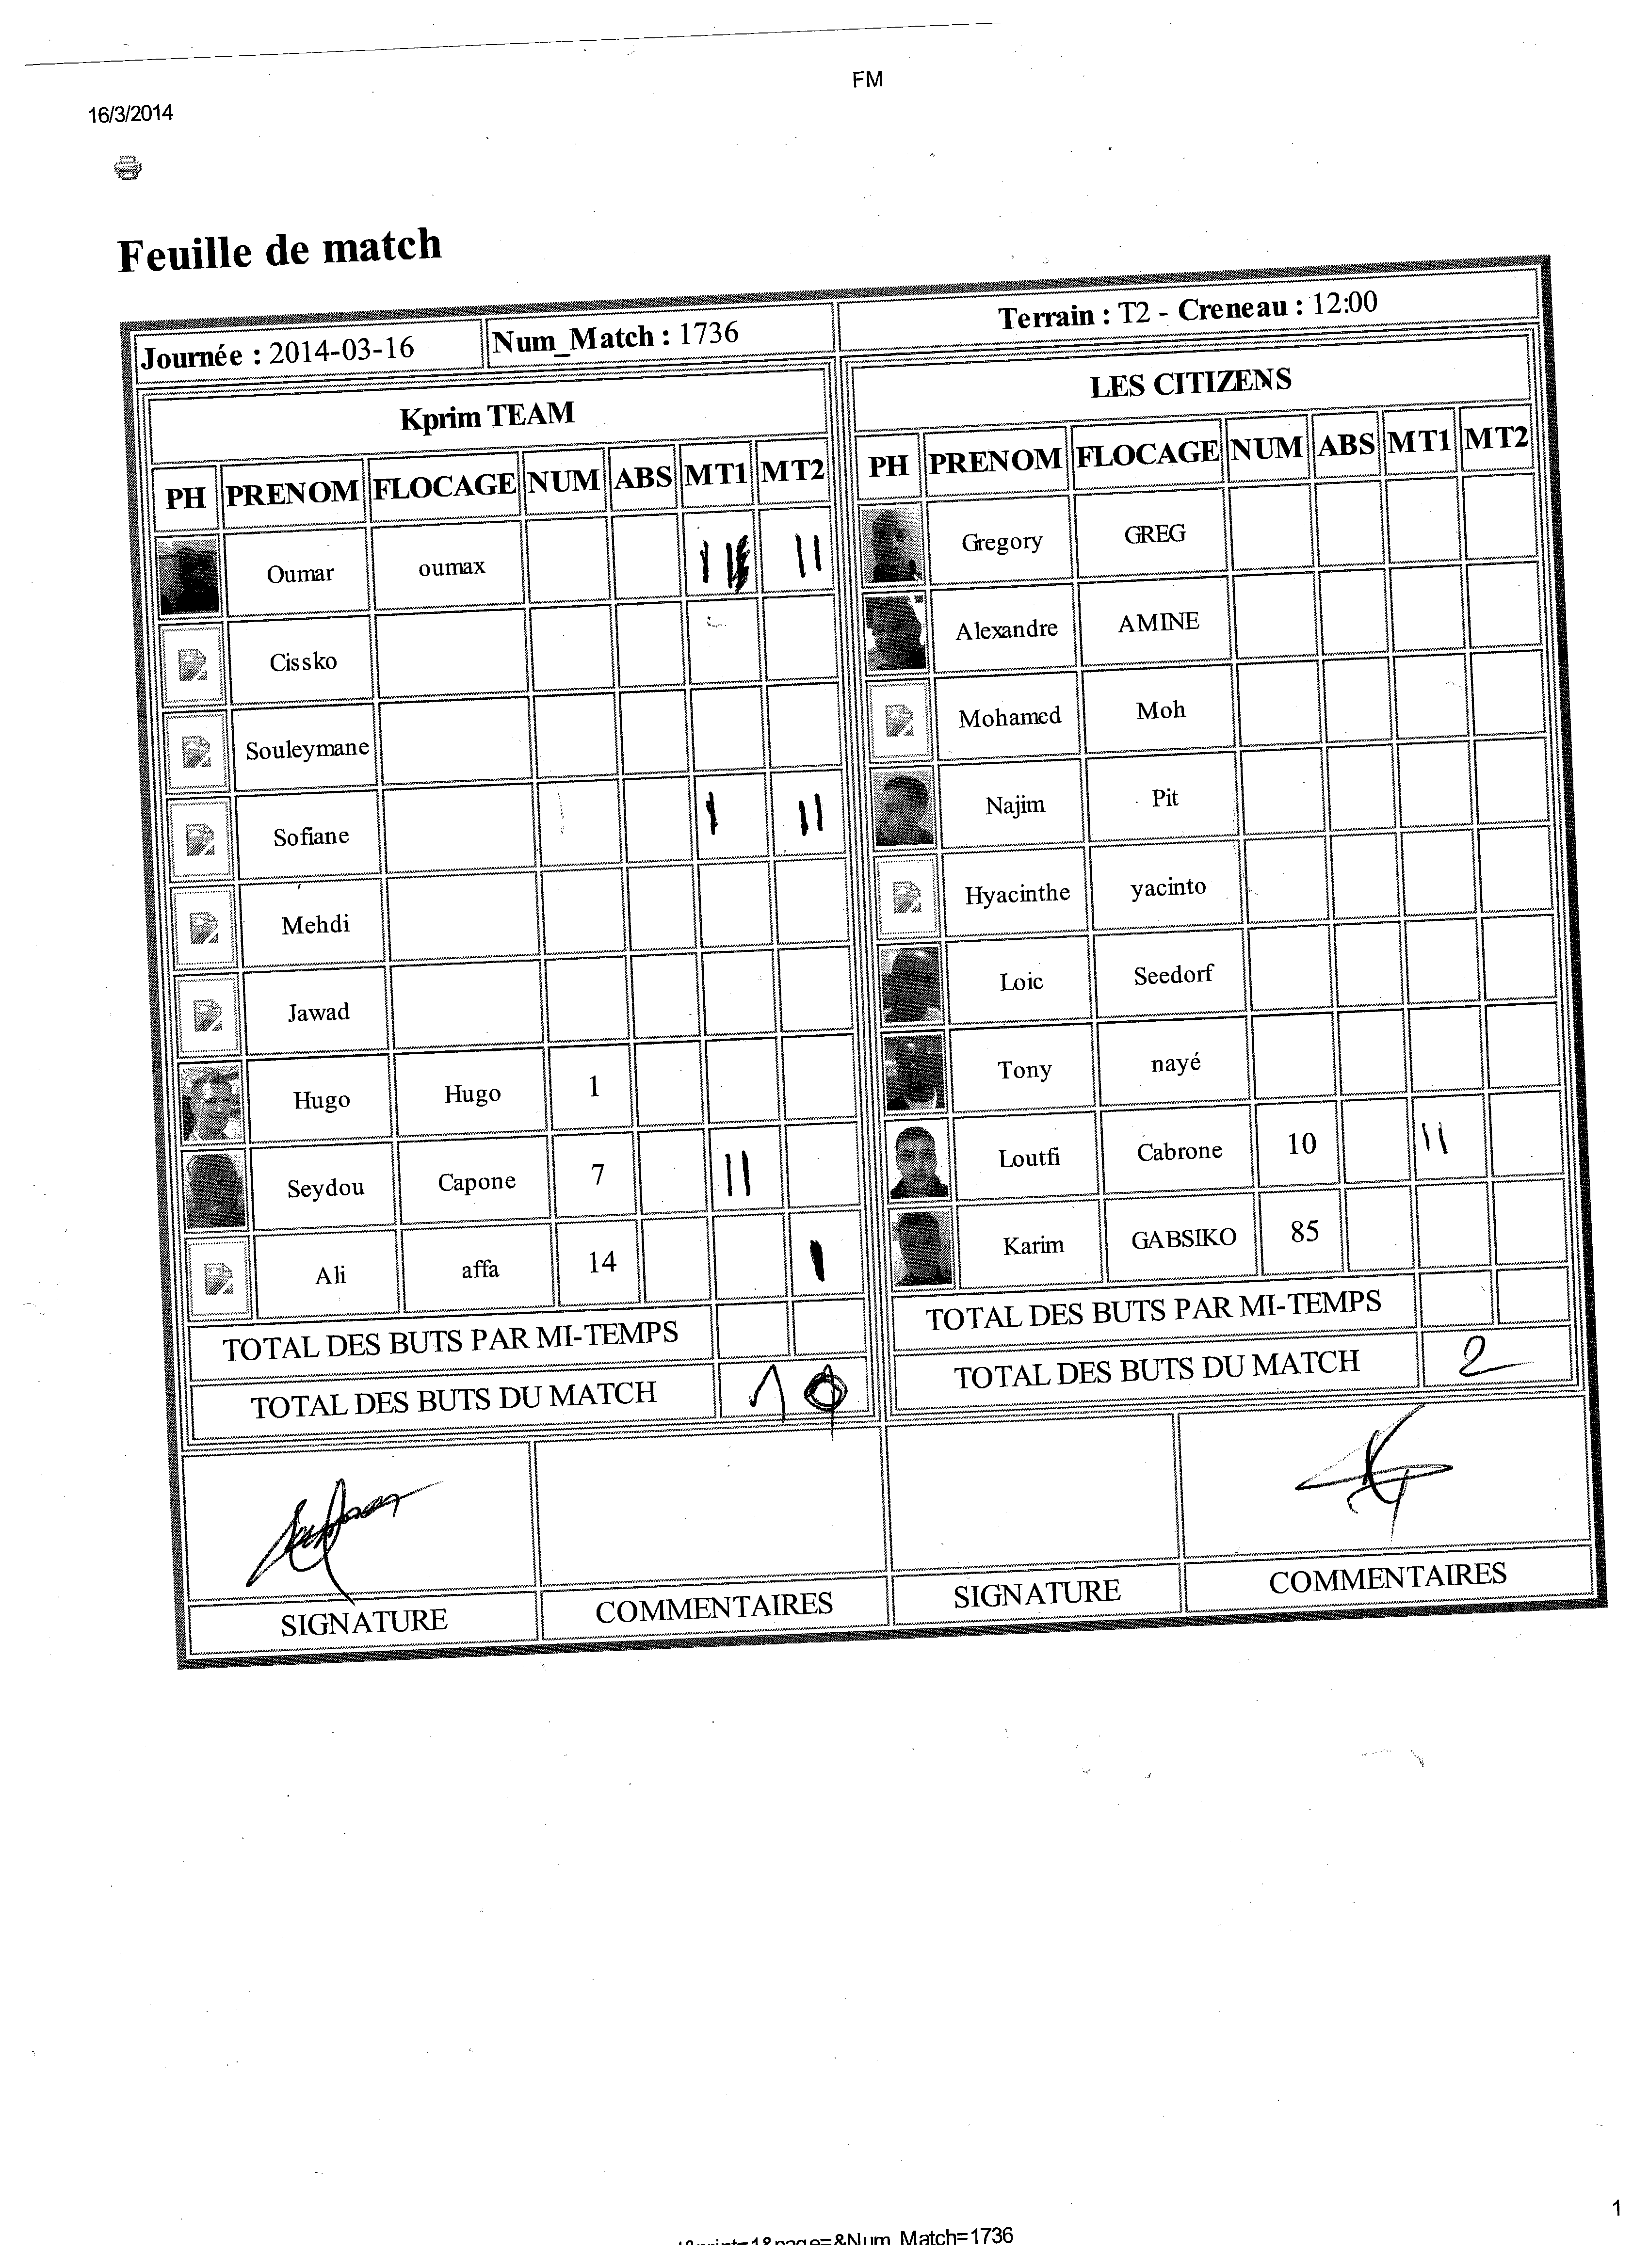 FM
16/3/2014
Feuille de match
Journée : 2014-03-16 Num_Match : 1736 Terrain : T2 - Creneau : 12:00
Kprim TEAM
PH PRENOM FLOCAGE NUM ABS MT1 MT2
Oumar oumax II
Cissko
Souleymane
Sofiane I II
Mehdi
Jawad
Hugo Hugo 1
Seydou Capone 7 II
Ali affa 14 I
TOTAL DES BUTS PAR MI-TEMPS
TOTAL DES BUTS DU MATCH
SIGNATURE COMMENTAIRES
LES CITIZENS
PH PRENOM FLOCAGE NUM ABS MT1 MT2
Gregory GREG
Alexandre AMINE
Mohamed Moh
Najim Pit
Hyacinthe yacinto
Loic Seedorf
Tony nayé
Loutfi Cabrone 10 II
Karim GABSIKO 85
TOTAL DES BUTS PAR MI-TEMPS
TOTAL DES BUTS DU MATCH 2
SIGNATURE COMMENTAIRES
1
=1&page=&Num_Match=1736